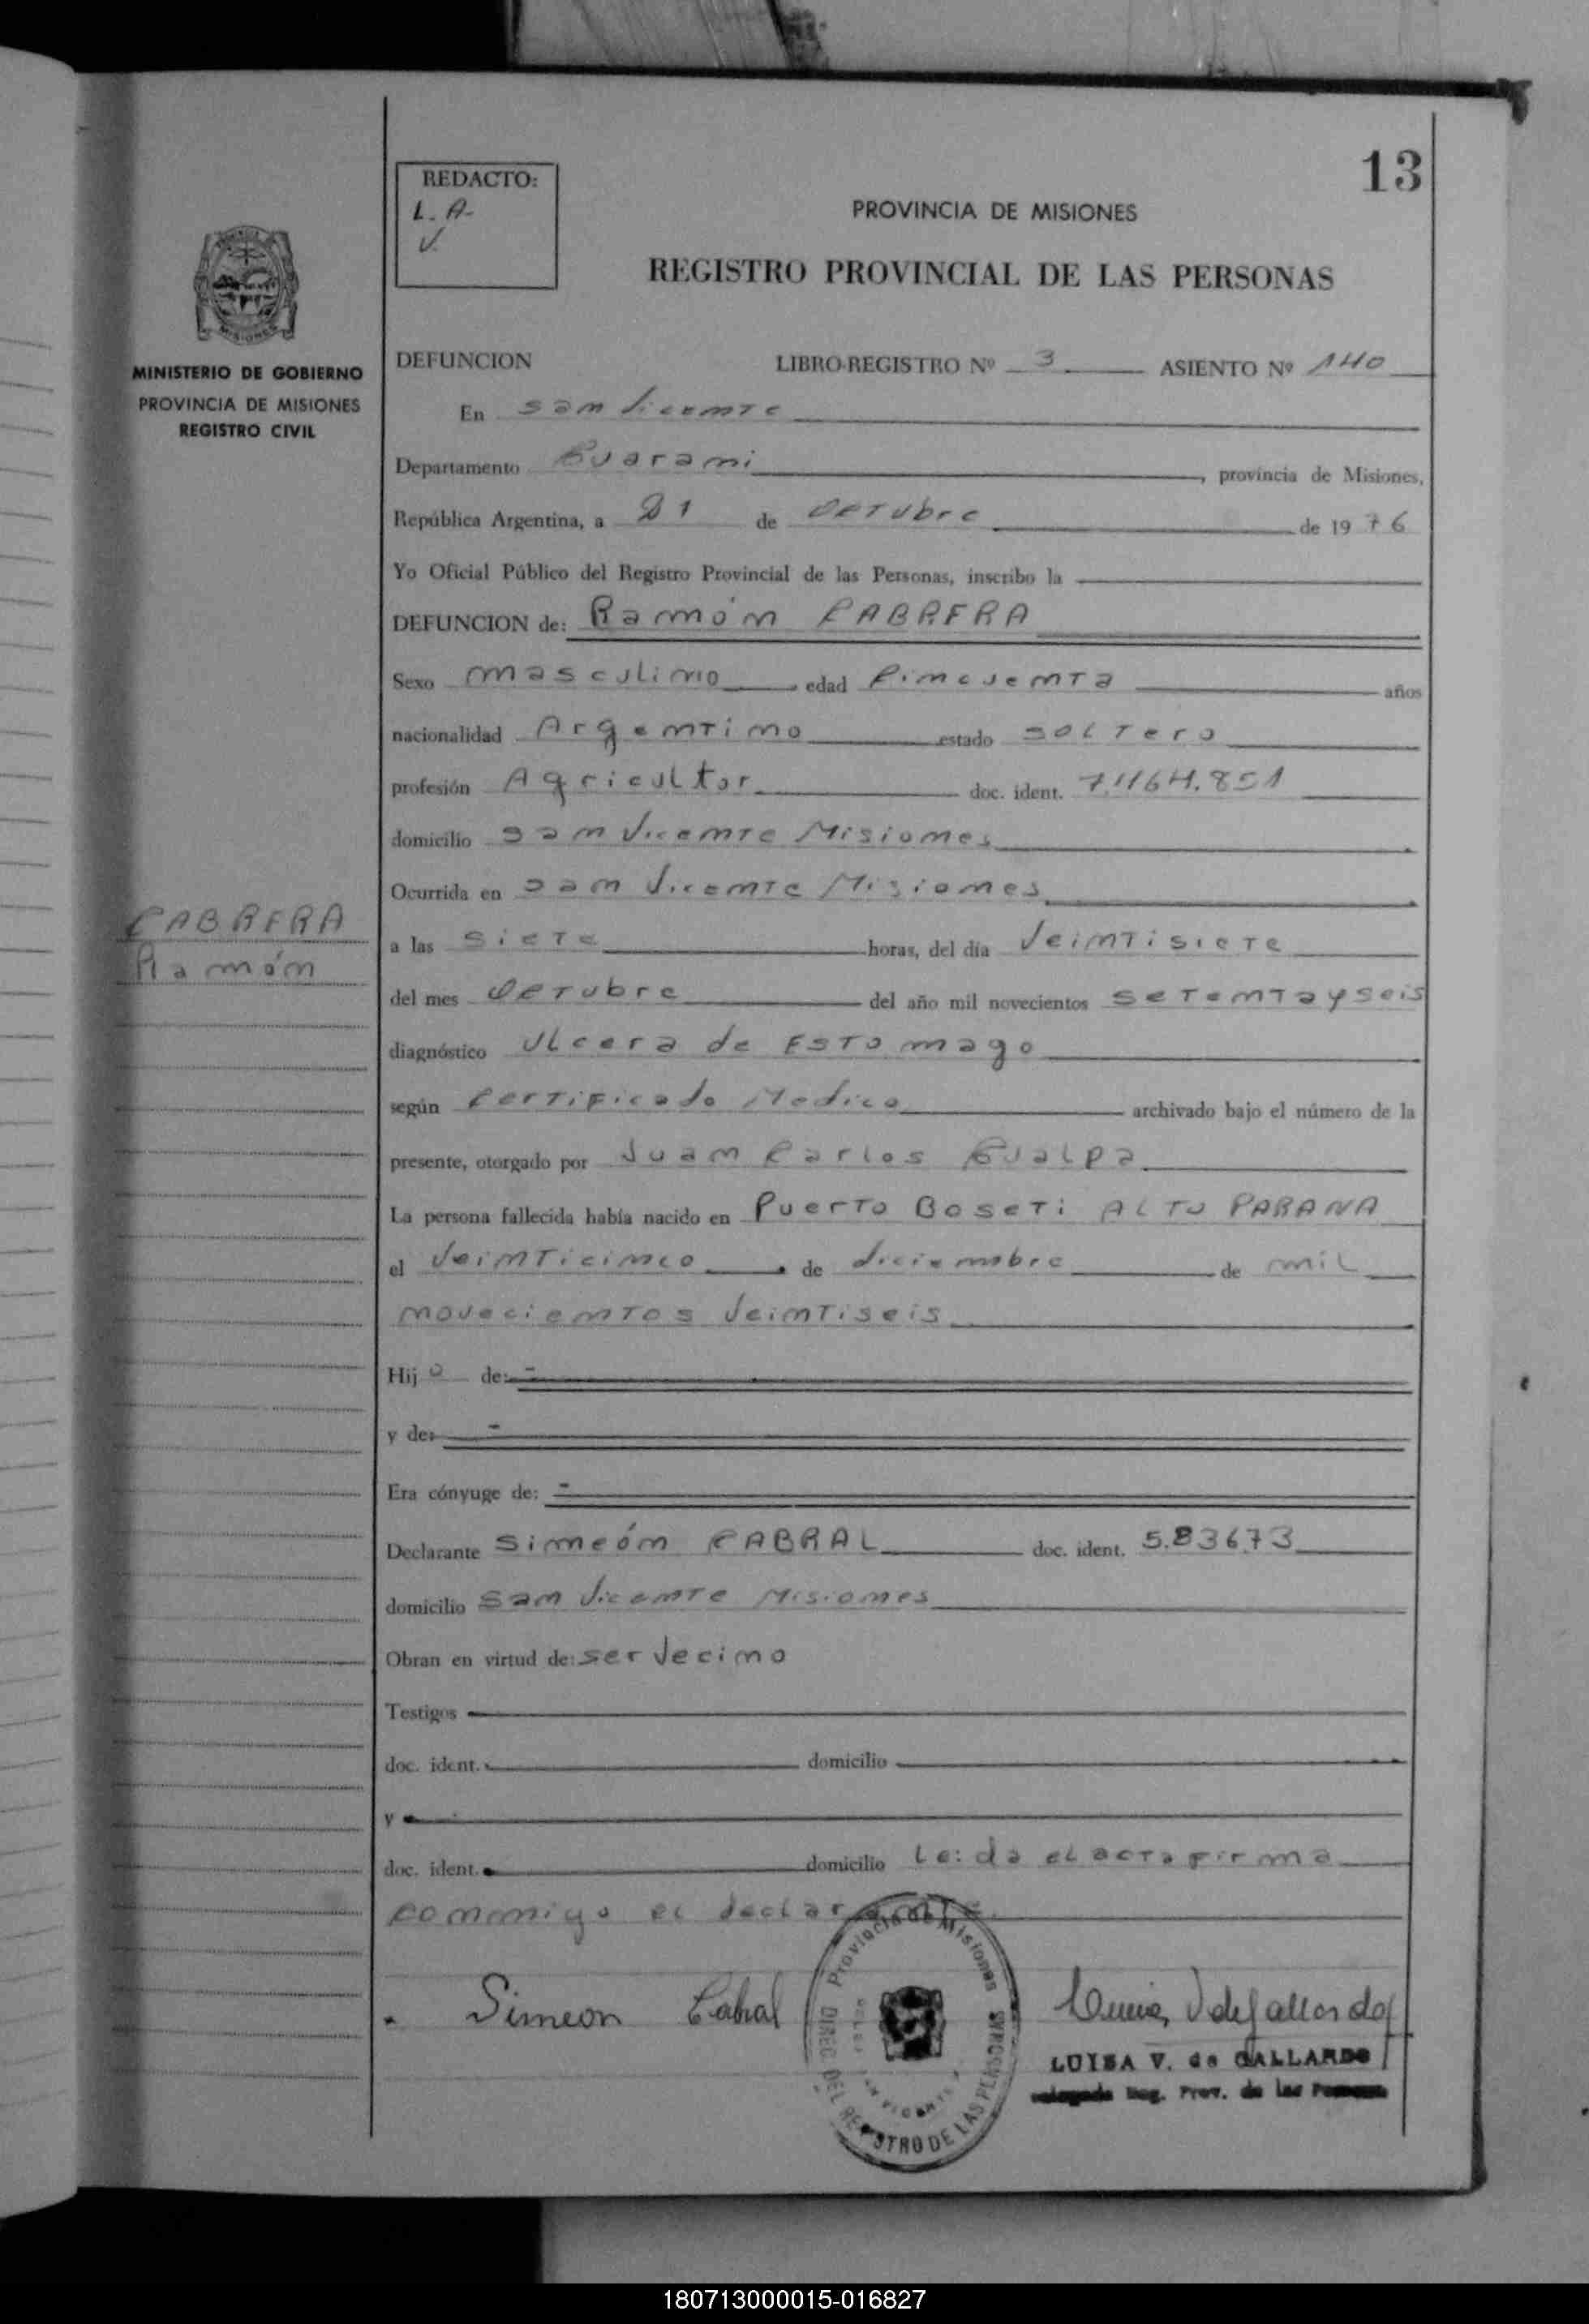 13
REDACTO:
L. A.
V.
PROVINCIA DE MISIONES
REGISTRO PROVINCIAL DE LAS PERSONAS
MINISTERIO DE GOBIERNO
PROVINCIA DE MISIONES
REGISTRO CIVIL
DEFUNCION LIBRO-REGISTRO Nº 3 ASIENTO Nº 140
En San Vicente
Departamento Guarani, provincia de Misiones,
República Argentina, a 21 de Octubre de 1976
Yo Oficial Público del Registro Provincial de las Personas, inscribo la
DEFUNCION de: Ramón CABRERA
Sexo masculino edad Cincuenta años
nacionalidad Argentino estado solTero
profesión Agricultor doc. ident.
domicilio San Vicente Misiones
Ocurrida en San Vicente Misiones
CABRERA
Ramón
a las siete horas, del día Veintisiete
del mes Octubre del año mil novecientos setentayseis
diagnóstico Ulcera de Estomago
según Certificado Medico archivado bajo el número de la
presente, otorgado por Juan Carlos Gualpa
La persona fallecida había nacido en Puerto Boseti ALTO PARANA
el Veinticinco de diciembre de mil
novecientos Veintiseis
Hijo de: -
y de: -
Era cónyuge de: -
Declarante Simeón CABRAL doc. ident. 5.83673
domicilio San Vicente Misiones
Obran en virtud de: ser Vecino
Testigos
doc. ident. domicilio
y
doc. ident. domicilio Leida el acta firma
conmigo el declarante.
Simeon Cabral
Provincia de Misiones
DIREC. DEL REGISTRO DE LAS PERSONAS
LUISA V. de GALLARDO
Reg. Prov. de las Personas
180713000015-016827